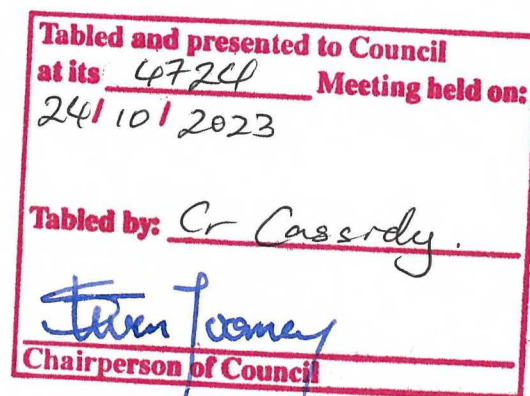 Tabled and presented to Council
at its 4724 Meeting held on:
24/10/2023
Tabled by: Cr Cassidy.
Steven Toomey
Chairperson of Council